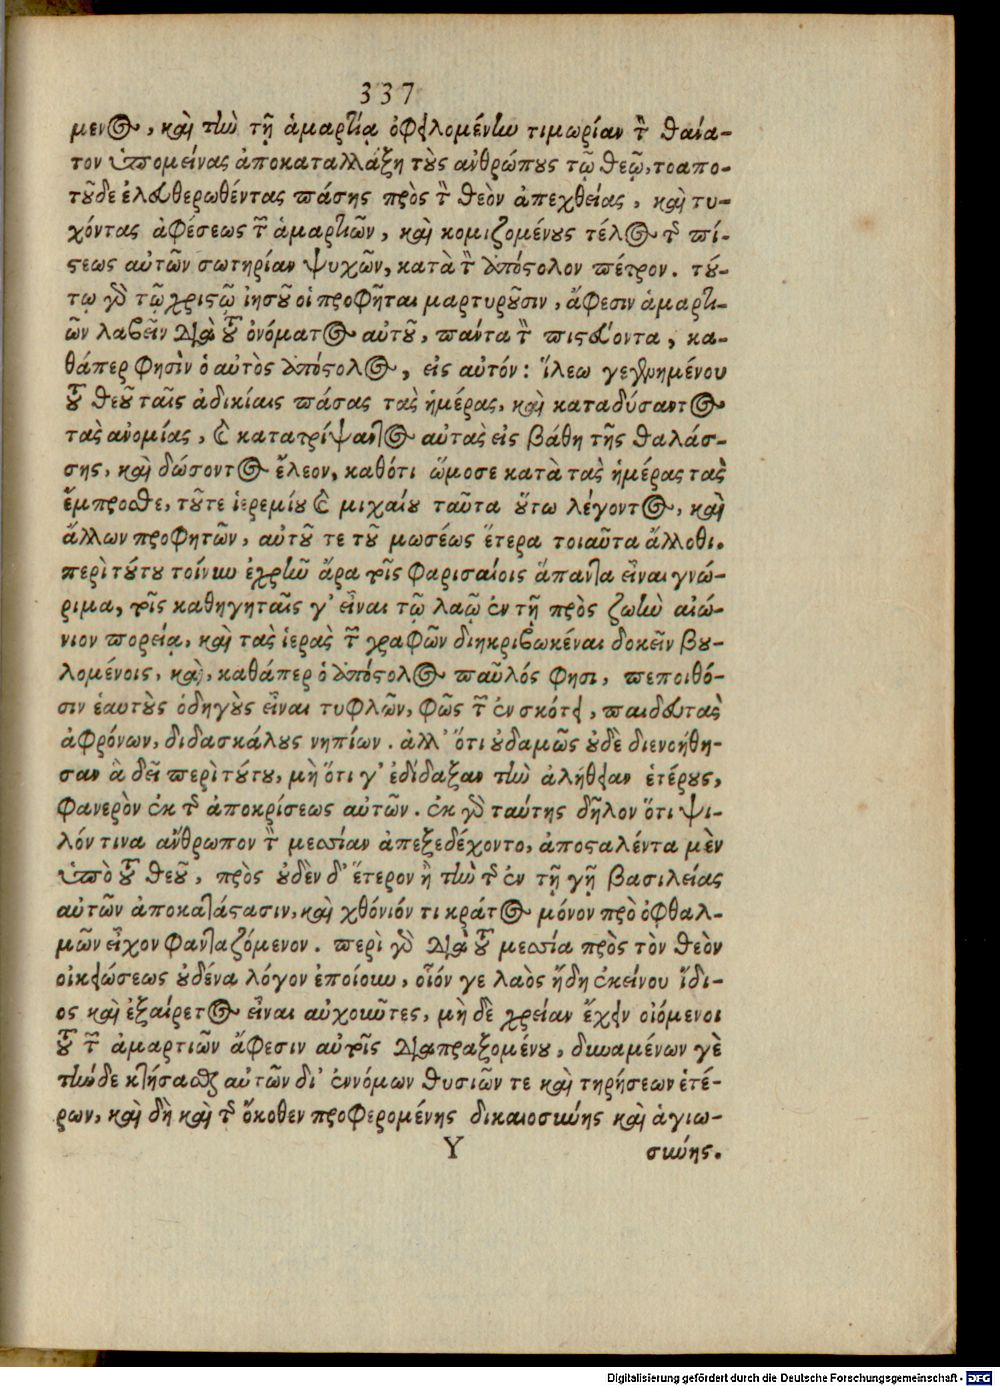 337
μενος, καὶ τὴν τῇ ἁμαρτίᾳ ὀφειλομένην τιμωρίαν τὸν θάνα-
τον ὑπομείνας ἀποκαταλλάξῃ τοὺς ἀνθρώπους τῷ θεῷ, τοαπο-
τοῦδε ἐλευθερωθέντας πάσης πρὸς τὸν θεὸν ἀπεχθείας, καὶ τυ-
χόντας ἀφέσεως τῶν ἁμαρτιῶν, καὶ κομιζομένους τέλος τῆς πί-
στεως αὐτῶν σωτηρίαν ψυχῶν, κατὰ τὸν ἀπόστολον πέτρον. τού-
τῳ γὰρ τῷ χριστῷ ἰησοῦ οἱ προφῆται μαρτυροῦσιν, ἄφεσιν ἁμαρτι-
ῶν λαβεῖν διὰ τοῦ ὀνόματος αὐτοῦ, πάντα τὸν πιστεύοντα, κα-
θάπερ φησὶν ὁ αὐτὸς ἀπόστολος, εἰς αὐτόν: ἵλεω γεγενημένου
τοῦ θεοῦ ταῖς ἀδικίαις πάσας τὰς ἡμέρας, καὶ καταδύσαντος
τὰς ἀνομίας, καὶ κατατρίψαντος αὐτὰς εἰς βάθη τῆς θαλάσ-
σης, καὶ δώσοντος ἔλεον, καθότι ὤμοσε κατὰ τὰς ἡμέρας τὰς
ἔμπροσθε, τοῦτε ἱερεμίου καὶ μιχαίου ταῦτα οὕτω λέγοντος, καὶ
ἄλλων προφητῶν, αὐτοῦ τε τοῦ μωσέως ἕτερα τοιαῦτα ἄλλοθι.
περὶ τούτου τοίνυν ἐχρῆν ἄρα τοῖς φαρισαίοις ἅπαντα εἶναι γνώ-
ριμα, τοῖς καθηγηταῖς γ’ εἶναι τῷ λαῷ ἐν τῇ πρὸς ζωὴν αἰώ-
νιον πορείᾳ, καὶ τὰς ἱερὰς τῶν γραφῶν διηκριβωκέναι δοκεῖν βου-
λομένοις, καὶ, καθάπερ ὁ ἀπόστολος παῦλός φησι, πεποιθό-
σιν ἑαυτοὺς ὁδηγοὺς εἶναι τυφλῶν, φῶς τῶν ἐν σκότει, παιδευτὰς
ἀφρόνων, διδασκάλους νηπίων. ἀλλ’ ὅτι οὐδαμῶς οὐδὲ διενοήθη-
σαν ἃ δεῖ περὶ τούτου, μὴ ὅτι γ’ ἐδίδαξαν τὴν ἀλήθειαν ἑτέρους,
φανερὸν ἐκ τῆς ἀποκρίσεως αὐτῶν. ἐκ γὰρ ταύτης δῆλον ὅτι ψι-
λόν τινα ἄνθρωπον τὸν μεσσίαν ἀπεξεδέχοντο, ἀποσταλέντα μὲν
ὑπὸ τοῦ θεοῦ, πρὸς οὐδὲν δ’ ἕτερον ἢ τὴν τῆς ἐν τῇ γῇ βασιλείας
αὐτῶν ἀποκατάστασιν, καὶ χθόνιόν τι κράτος μόνον πρὸ ὀφθαλ-
μῶν εἶχον φανταζόμενον. περὶ γὰρ διὰ τοῦ μεσσία πρὸς τὸν θεὸν
οἰκειώσεως οὐδένα λόγον ἐποίουν, οἷόν γε λαὸς ἤδη ἐκείνου ἴδι-
ος καὶ ἐξαίρετος εἶναι αὐχοῦντες, μὴ δὲ χρείαν ἔχειν οἰόμενοι
τοῦ τῶν ἁμαρτιῶν ἄφεσιν αὐτοῖς διαπραξομένου, δυναμένων γὲ
τήνδε κτήσασθαι αὐτῶν δι’ ἐννόμων θυσιῶν τε καὶ τηρήσεων ἑτέ-
ρων, καὶ δὴ καὶ τῆς οἴκοθεν προφερομένης δικαιοσύνης καὶ ἁγιω-
Y σύνης.
Digitalisierung gefördert durch die Deutsche Forschungsgemeinschaft - DFG